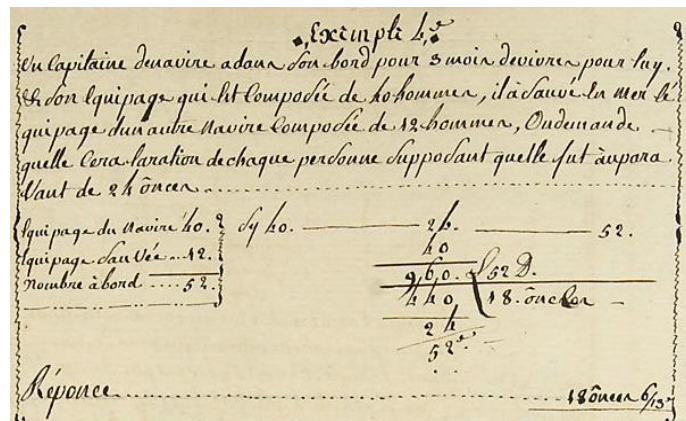 Exemple 4.e
Un Capitaine denavire adans son bord pour 3 mois devivres pour luy.
& son Equipage qui est Composée de 40 hommes, il à sauvé en mer lé
quipage dun autre Navire Composée de 12 hommes, Ondemande
quelle Cera laration dechaque personne supposant quelle fut àupara
Vant de 24 ônces
Equipage du Navire 40. Sy 40. 24. 52.
Equipage Sauvée 12. 40
Nombre à bord 52. 960. 52 D.
440 18. ônces
24
52e
Réponce 18 ônces 6/13